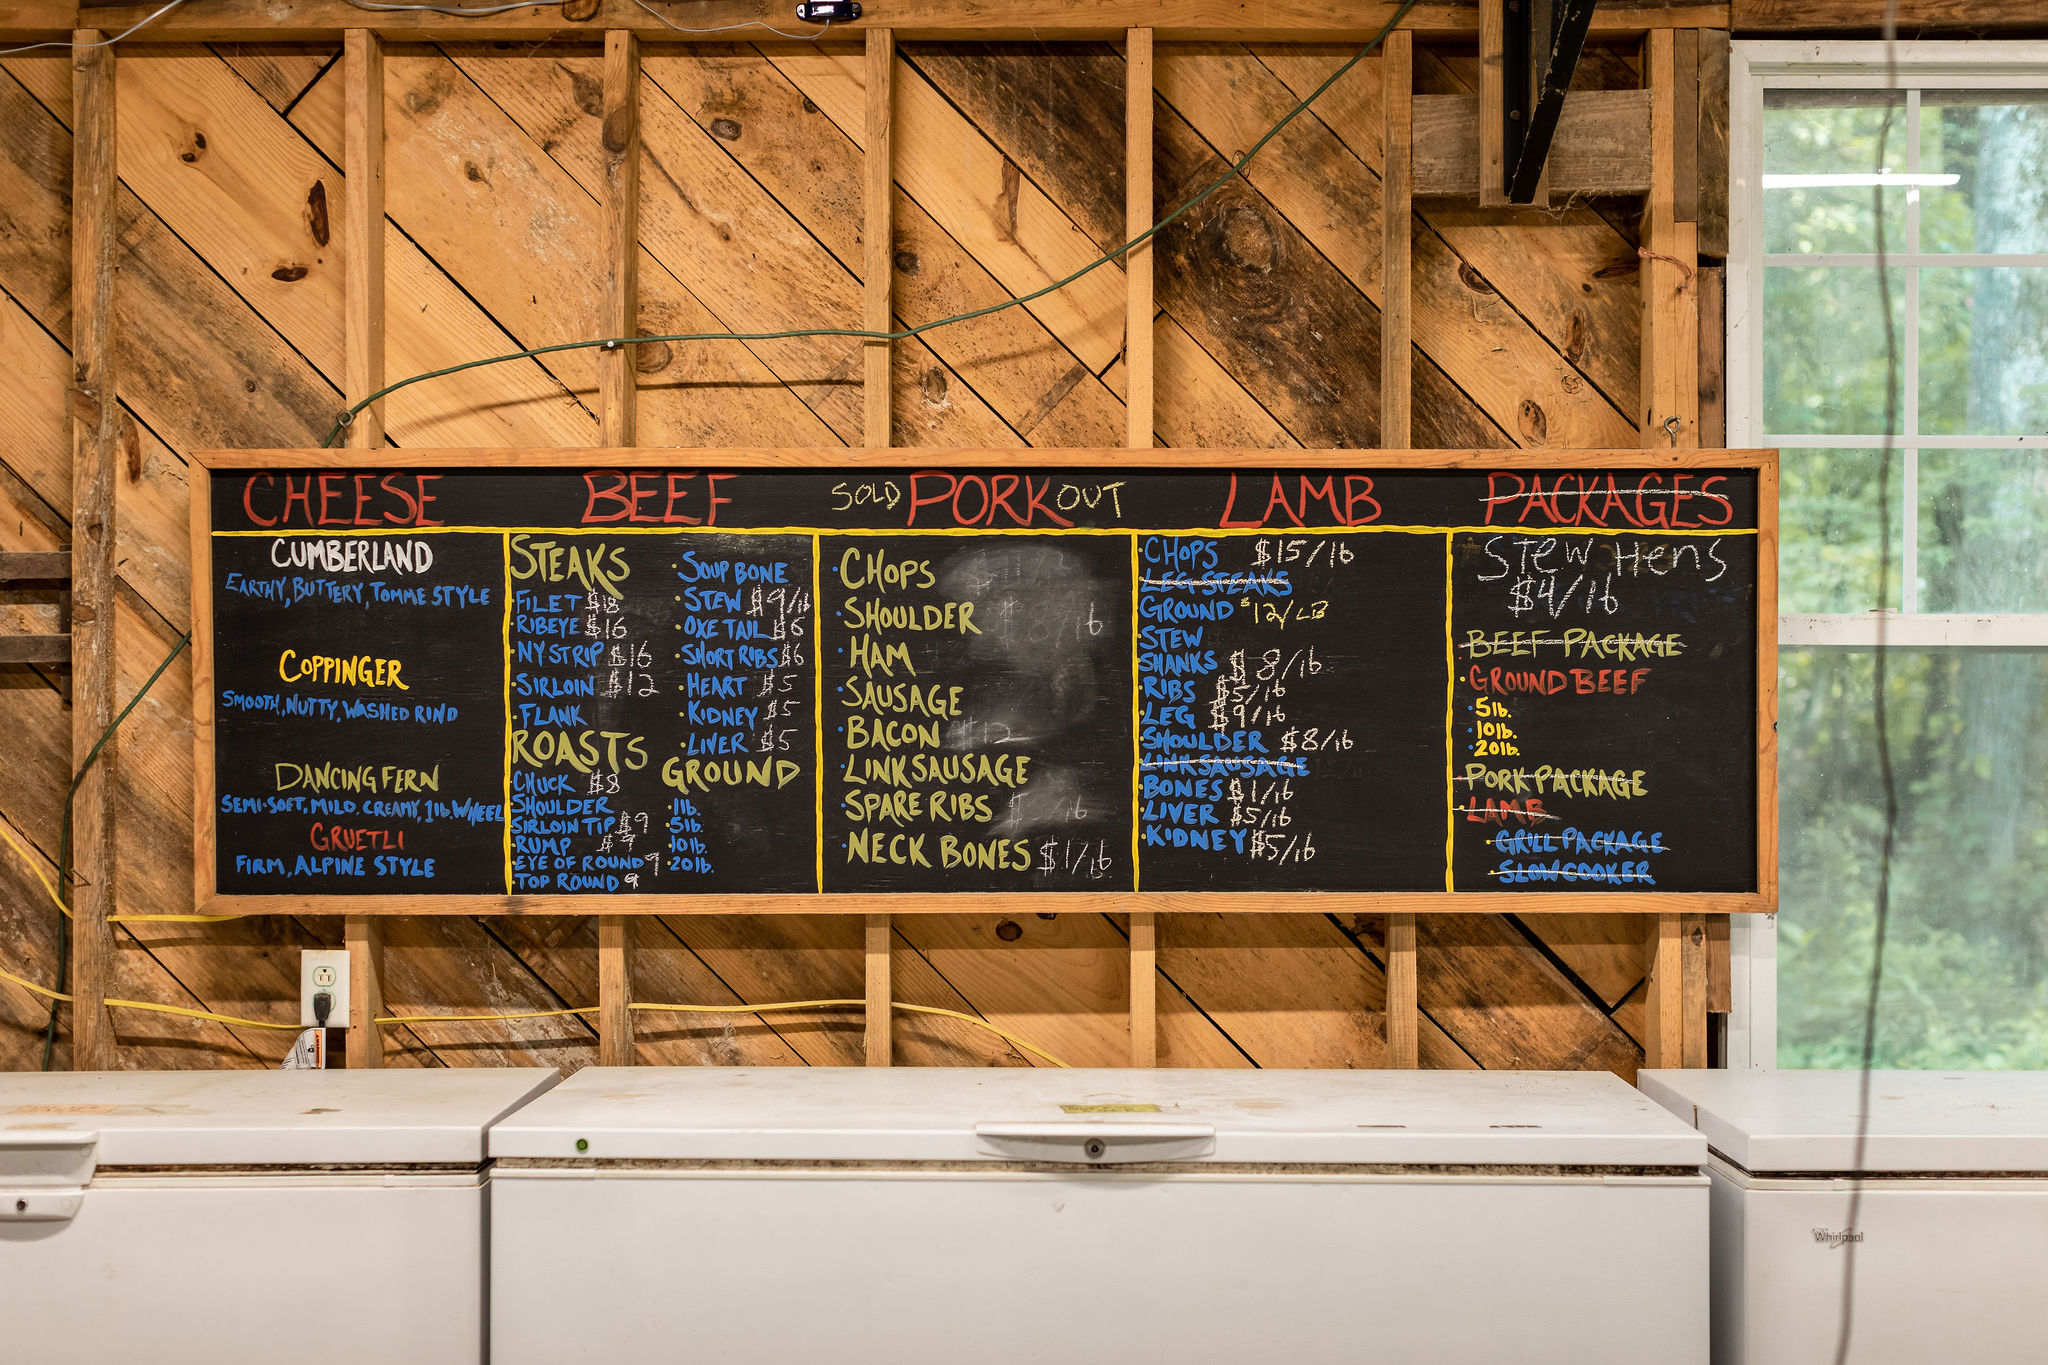 CHEESE
CUMBERLAND
EARTHY, BUTTERY, TOMME STYLE
COPPINGER
SMOOTH, NUTTY, WASHED RIND
DANCING FERN
SEMI-SOFT, MILD, CREAMY, 1lb. WHEEL
GRUETLI
FIRM, ALPINE STYLE
BEEF
STEAKS
FILET $18
RIBEYE $16
NY STRIP $16
SIRLOIN $12
FLANK
ROASTS
CHUCK $8
SHOULDER
SIRLOIN TIP $9
RUMP $9
EYE OF ROUND 9
TOP ROUND 9
SOUP BONE
STEW $9/lb
OXE TAIL $6
SHORT RIBS $6
HEART $5
KIDNEY $5
LIVER $5
GROUND
1lb.
5lb.
10lb.
20lb.
SOLD PORK OUT
CHOPS
SHOULDER lb
HAM
SAUSAGE
BACON $12
LINK SAUSAGE
SPARE RIBS $ /lb
NECK BONES $1/lb.
LAMB
CHOPS $15/lb
LEG STEAKS
GROUND $12/LB
STEW
SHANKS $8/lb
RIBS $5/lb
LEG $9/lb
SHOULDER $8/lb
LINK SAUSAGE
BONES $1/lb
LIVER $5/lb
KIDNEY $5/lb
PACKAGES
Stew Hens
$4/lb
BEEF PACKAGE
GROUND BEEF
5lb.
10lb.
20lb.
PORK PACKAGE
LAMB
GRILL PACKAGE
SLOW COOKER
Whirlpool